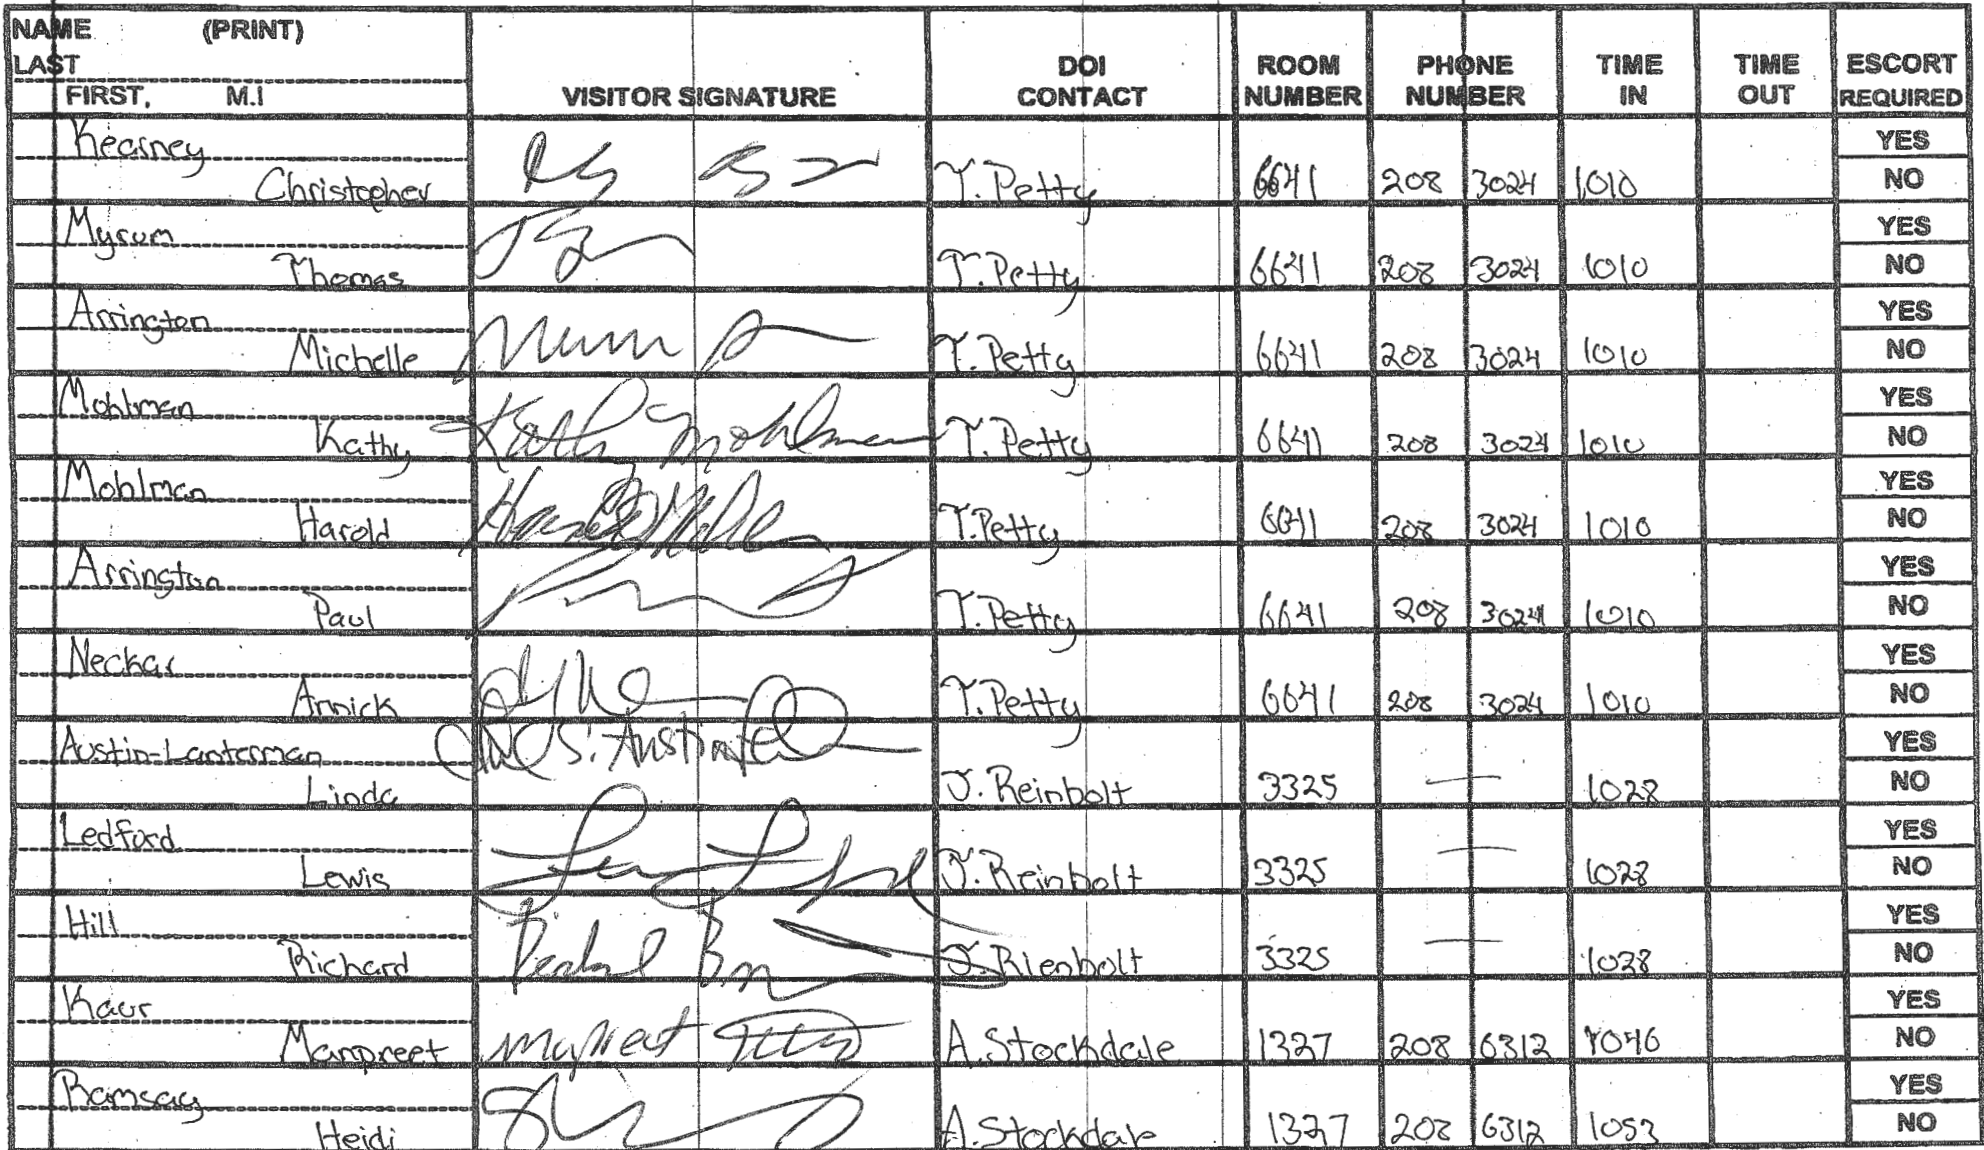 NAME (PRINT)
LAST
FIRST, M.I
VISITOR SIGNATURE
DOI CONTACT
ROOM NUMBER
PHONE NUMBER
TIME IN
TIME OUT
ESCORT REQUIRED
Kearney YES
Christopher T. Petty 6641 208 3024 1010 NO
Myrum YES
Thomas T. Petty 6641 208 3024 1010 NO
Arrington YES
Michelle T. Petty 6641 208 3024 1010 NO
Mohlman YES
Kathy Kathy Mohlman T. Petty 6641 208 3024 1010 NO
Mohlman YES
Harold T. Petty 6641 208 3024 1010 NO
Arrington YES
Paul T. Petty 6641 208 3024 1010 NO
Neckar YES
Annick T. Petty 6641 208 3024 1010 NO
Austin-Lanterman YES
Linda J. Reinbolt 3325 — 1028 NO
Ledford YES
Lewis J. Reinbolt 3325 — 1028 NO
Hill YES
Richard J. Rienbolt 3325 — 1028 NO
Kaur YES
Manpreet A. Stockdale 1327 208 6312 1046 NO
Ramsay YES
Heidi A. Stockdale 1327 208 6312 1053 NO